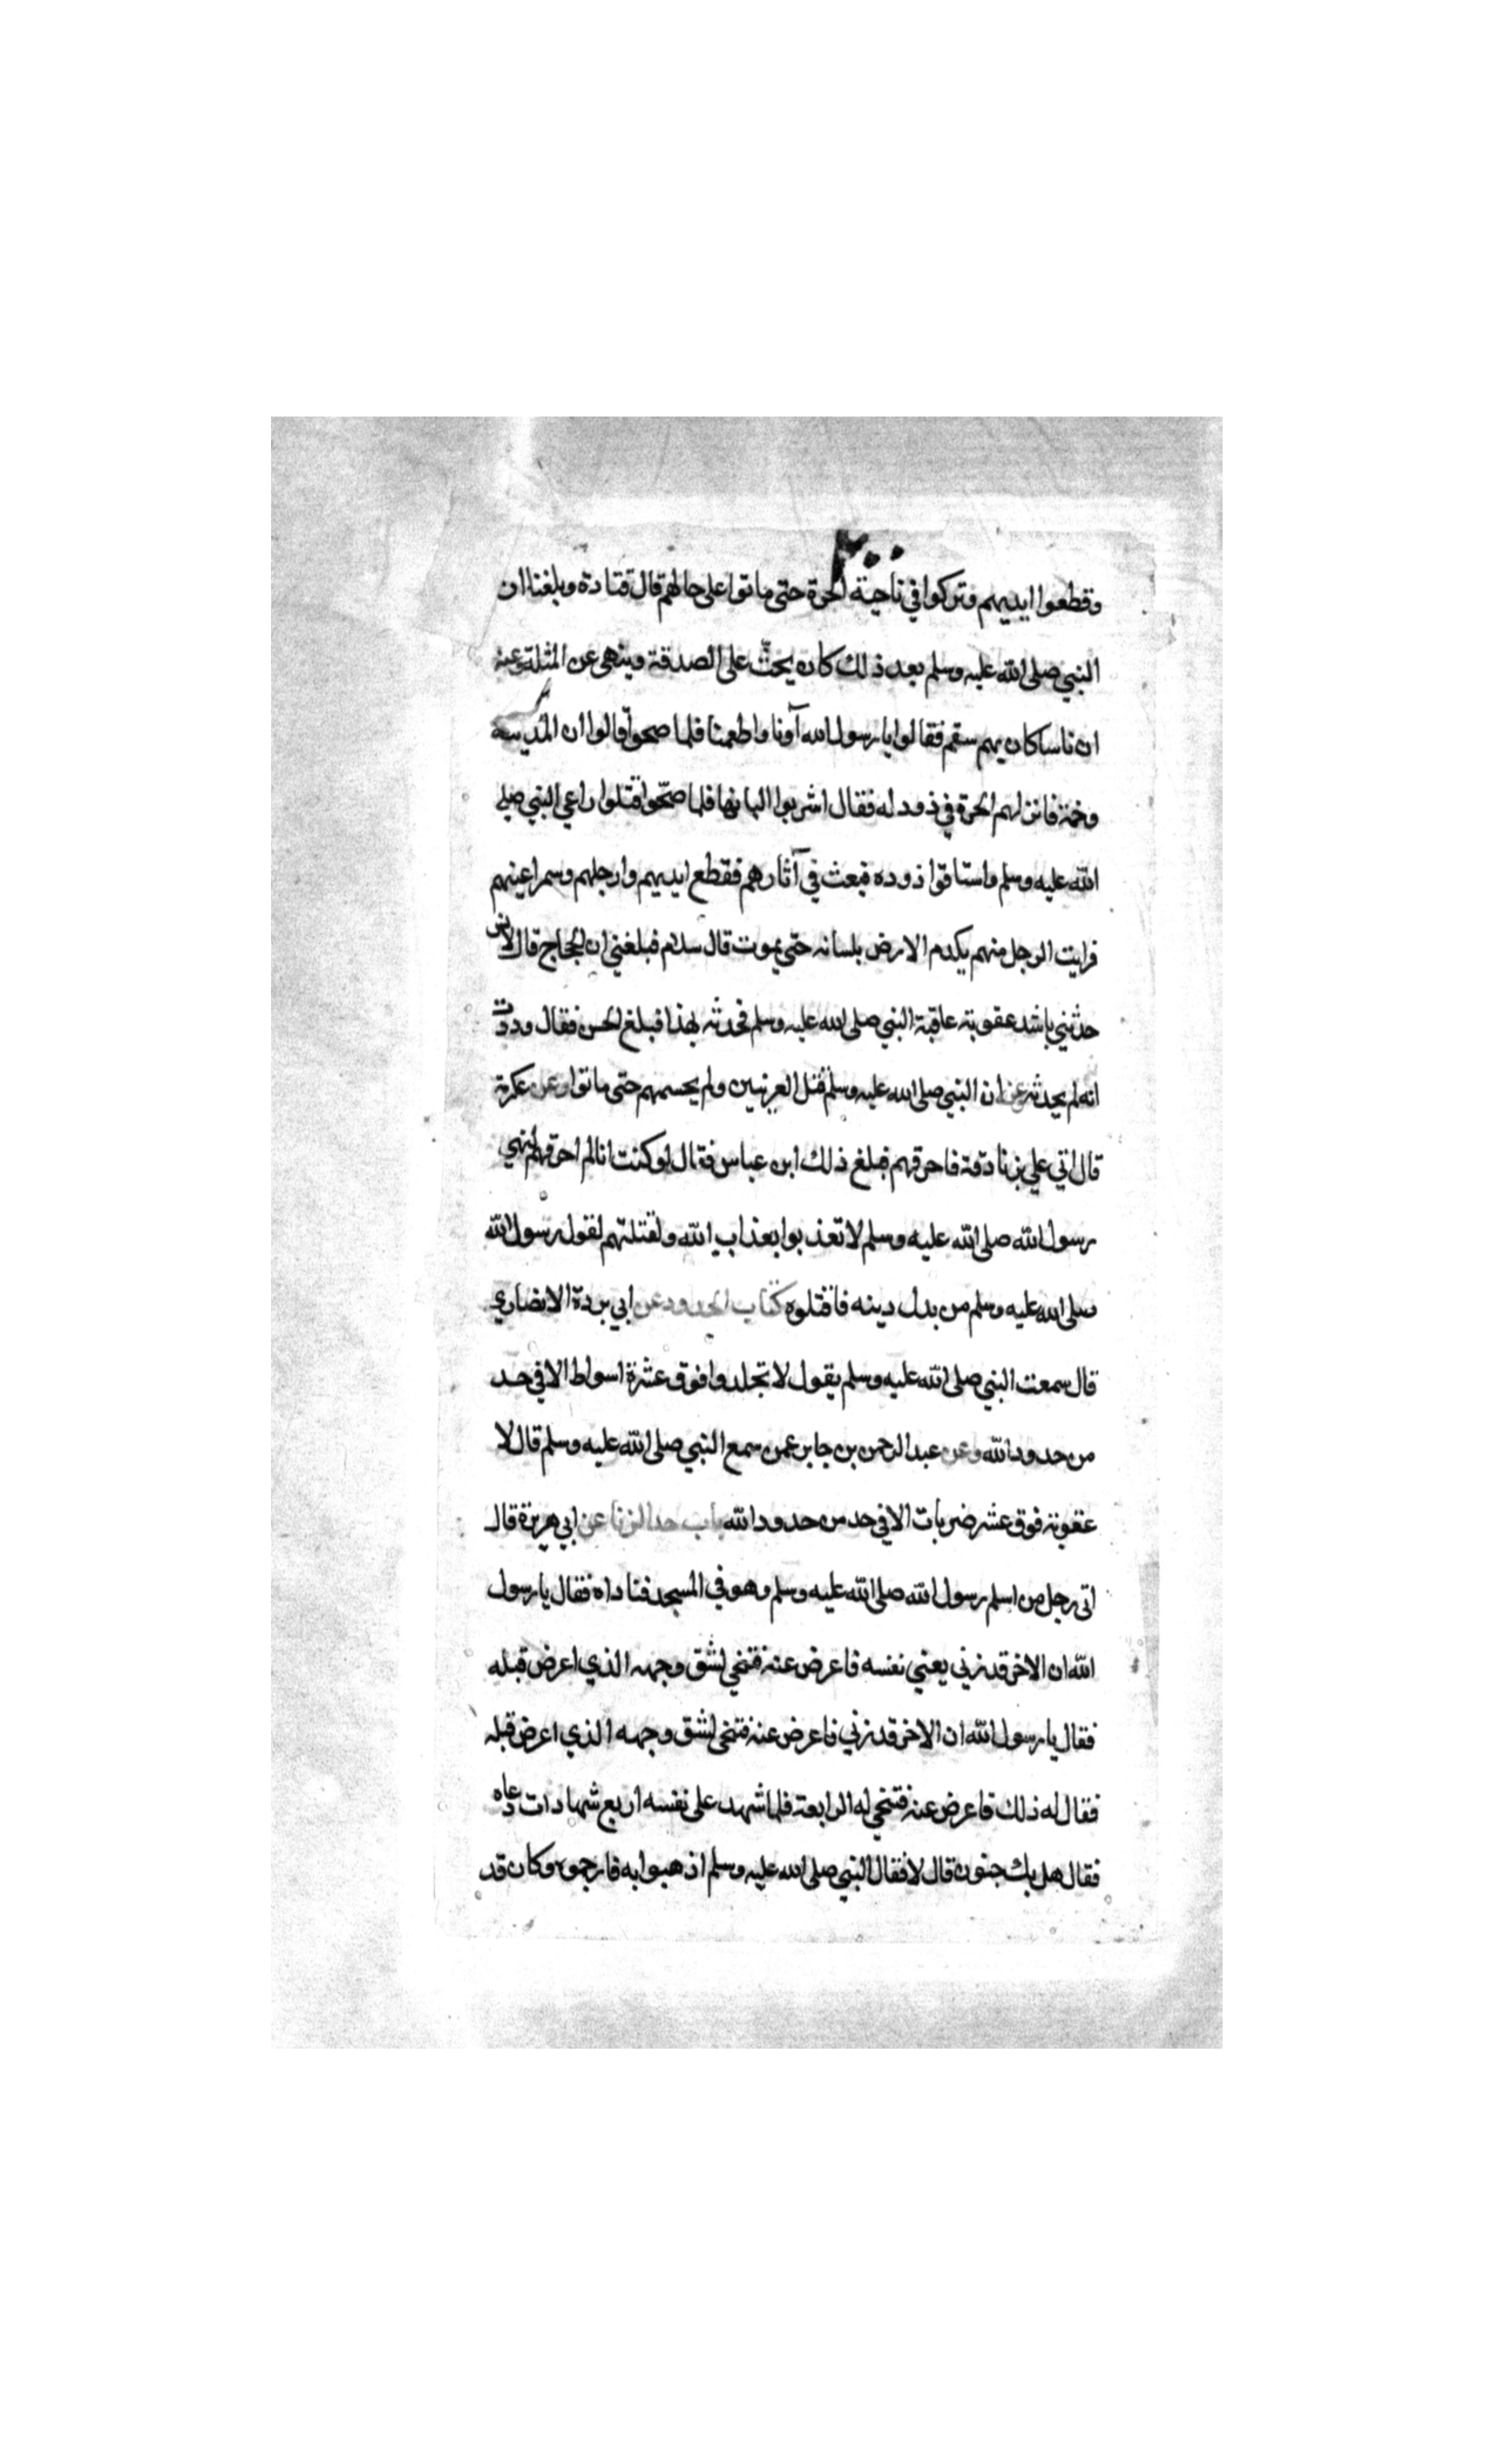 ٢٠٠
وقطعوا ايديهم وتركوا في ناحية الحرة حتى ماتوا على حالهم قال قتادة وبلغنا ان
النبي صلى الله عليه وسلم بعد ذلك كان يحثّ على الصدقة وينهى عن المثلة وعنه
ان ناسا كان بهم سقم فقالوا يا رسول الله آونا واطعمنا فلما صحوا قالوا ان المدينة
وخمة فانزلهم الحرة في ذود له فقال اشربوا البانها فلما صحّوا قتلوا راعي النبي صلى
الله عليه وسلم واستاقوا ذوده فبعث في آثارهم فقطع ايديهم وارجلهم وسمر اعينهم
فرايت الرجل منهم يكدم الارض بلسانه حتى يموت قال سلام فبلغني ان الحجاج قال لانس
حدثني باشد عقوبة عاقبة النبي صلى الله عليه وسلم فحدثه بهذا فبلغ الحسن فقال وددت
انه لم يحدثه ان النبي صلى الله عليه وسلم قتل العرنيين ولم يحسمهم حتى ماتوا وعن عكرمة
قال اتي علي بزنادقة فاحرقهم فبلغ ذلك ابن عباس فقال لو كنت انا لم احرقهم لنهي
رسول الله صلى الله عليه وسلم لا تعذبوا بعذاب الله ولقتلتهم لقول رسول الله
صلى الله عليه وسلم من بدل دينه فاقتلوه كتاب الحدود عن ابي بردة الانصاري
قال سمعت النبي صلى الله عليه وسلم يقول لا تجلدوا فوق عشرة اسواط الا في حد
من حدود الله وعن عبد الرحمن بن جابر عمن سمع النبي صلى الله عليه وسلم قال لا
عقوبة فوق عشر ضربات الا في حد من حدود الله باب حد الزنا عن ابي هريرة قال
اتى رجل من اسلم رسول الله صلى الله عليه وسلم وهو في المسجد فناداه فقال يا رسول
الله ان الاخر قد زني يعني نفسه فاعرض عنه فتنحى لشق وجهه الذي اعرض قبله
فقال يا رسول الله ان الاخر قد زني فاعرض عنه فتنحى لشق وجهه الذي اعرض قبله
فقال له ذلك فاعرض عنه فتنحى له الرابعة فلما شهد على نفسه اربع شهادات دعاه
فقال هل بك جنون قال لا فقال النبي صلى الله عليه وسلم اذهبوا به فارجموه وكان قد